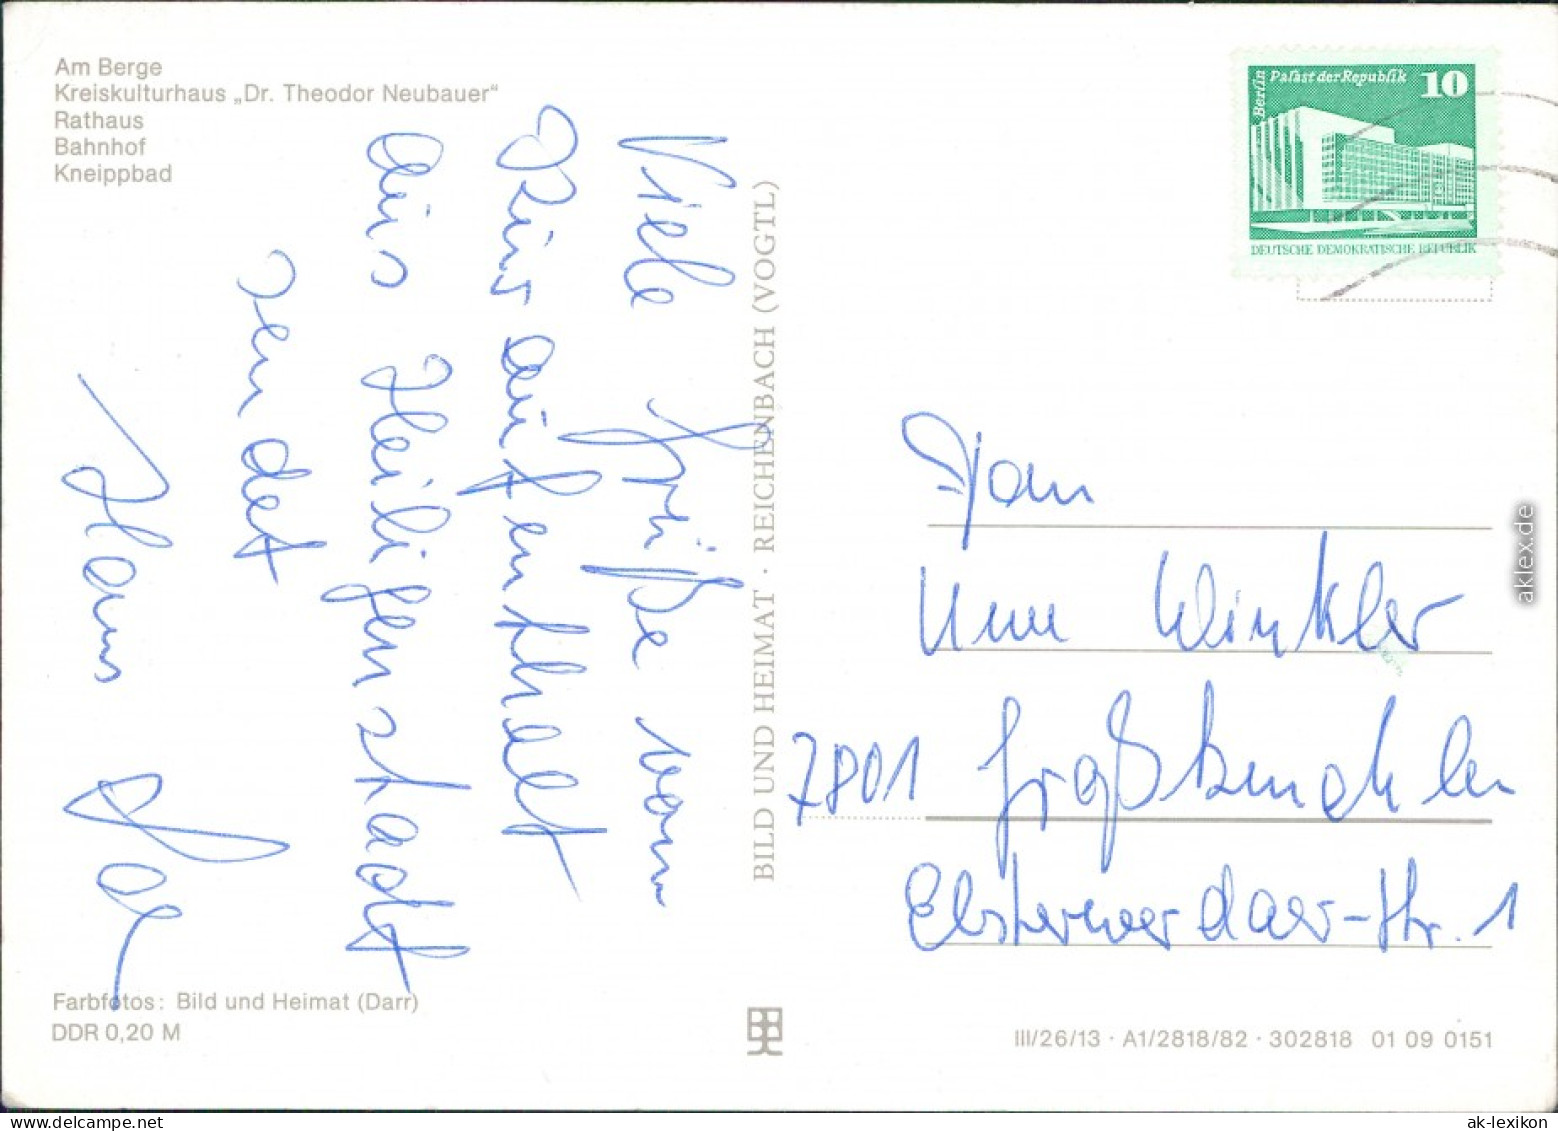 Am Berge
Kreiskulturhaus „Dr. Theodor Neubauer"
Rathaus
Bahnhof
Kneippbad
Viele Grüße vom
Kuraufenthalt
aus Heiligenstadt
sendet
Hans
BILD UND HEIMAT · REICHENBACH (VOGTL)
Berlin
Palast der Republik
10
DEUTSCHE DEMOKRATISCHE REPUBLIK
Fam
Winkler
7801 Großkmehlen
Elsterwerdaer-Str. 1
Farbfotos: Bild und Heimat (Darr)
DDR 0,20 M
III/26/13 · A1/2818/82 · 302818 01 09 0151
aklex.de
ak-lexikon